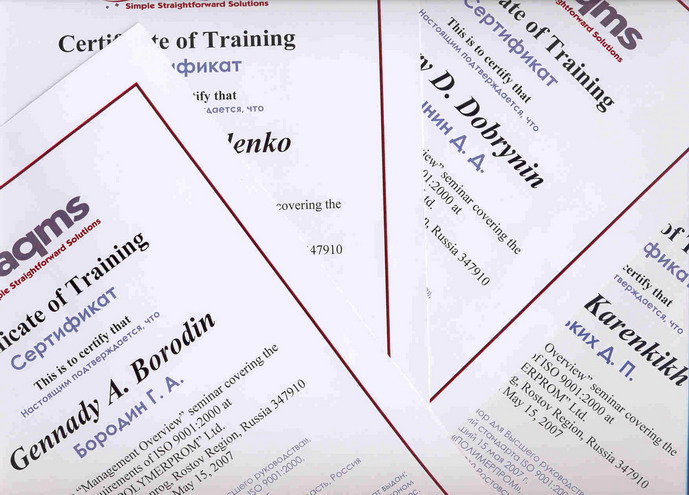 Simple Straightforward Solutions
te of Training
фикат
ify that
дается, что
lenko
covering the
47910
aqms
ple Straightforward Solutions
icate of Training
Сертификат
This is to certify that
Настоящим подтверждается, что
Gennady A. Borodin
Бородин Г. А.
"Management Overview" seminar covering the
quirements of ISO 9001:2000 at
POLYMERPROM" Ltd.
prog, Rostov Region, Russia 347910
May 15, 2007
для Высшего руководства,
ISO 9001:2000,
Россия
aqms
htforward Solutions
ate of Training
Сертификат
This is to certify that
Настоящим подтверждается, что
y D. Dobrynin
нин Д. Д.
view" seminar covering the
01:2000 at
td.
n, Russia 347910
of T
фикат
certify that
тверждается, что
Karenkikh
ких Д. П.
Overview" seminar covering the
of ISO 9001:2000 at
ERPROM" Ltd.
g, Rostov Region, Russia 347910
May 15, 2007
ор для Высшего руководств
ий стандарта ISO 9001:2000
15 мая 2007 г.
ПОЛИМЕРПРОМ»